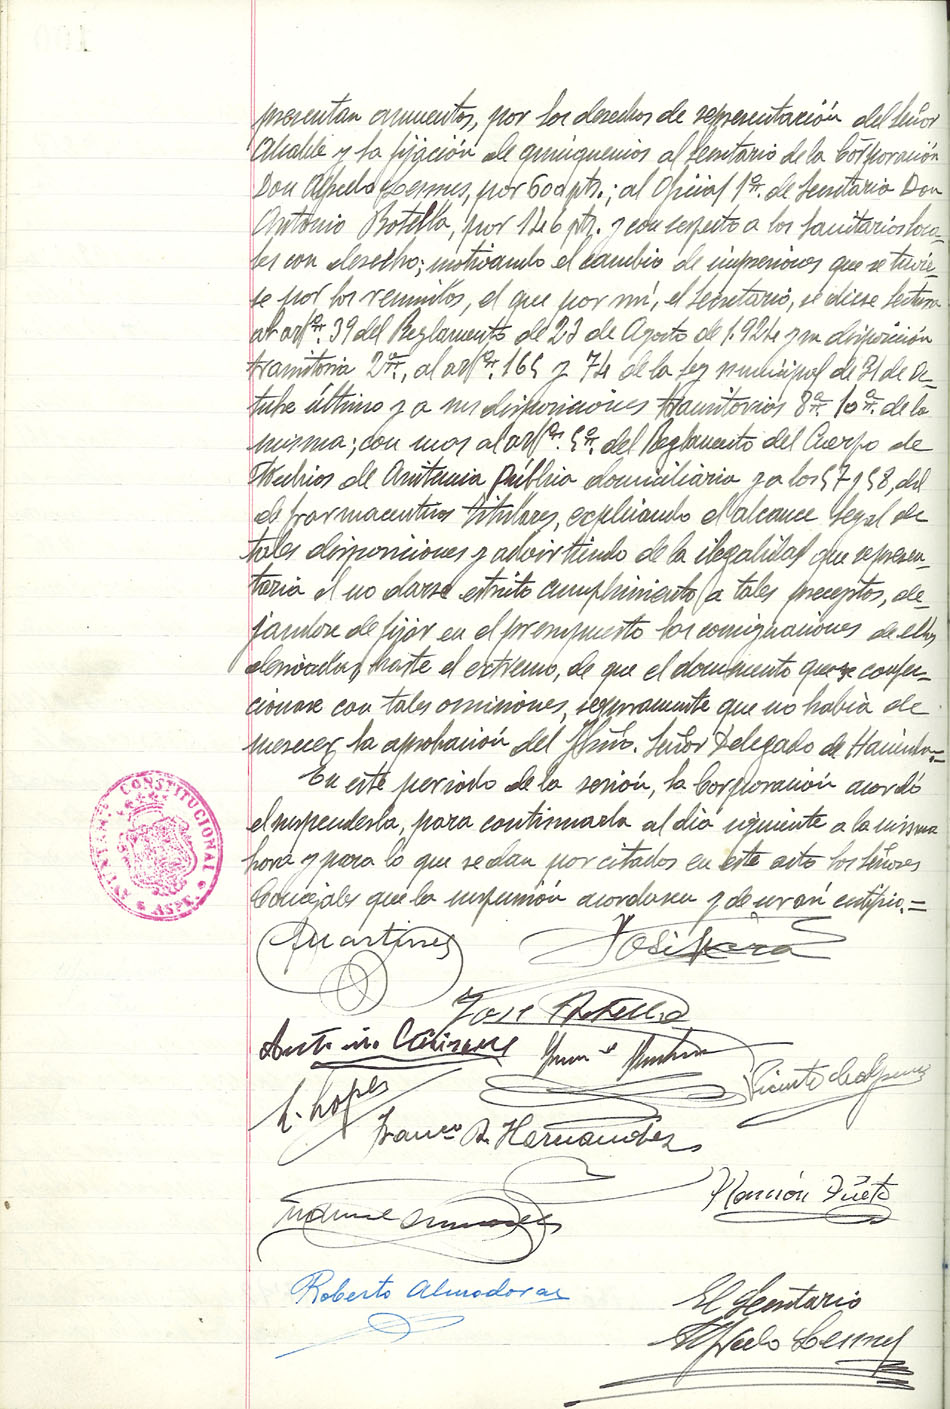 presentan aumentos, por los derechos de representación del Señor
Alcalde y la fijación de quinquenios al Secretario de la Corporación
Don Alfredo por 600 pts.; al Oficial 1º. de Secretaria Don
Antonio Botella, por 146 pts. y con respecto a los Sanitarios loca-
les con derecho; motivando el cambio de impresiones que se tuvie-
se por los reunidos, el que por mí, el Secretario, se diese lectura
al artº. 39 del Reglamento de 23 de Agosto de 1.924 y su disposición
transitoria 2ª., al artº. 165 y 74 de la Ley municipal de 31 de oc-
tubre último y a sus disposiciones transitorias 8ª. 10ª. de la
misma; con mas al artº. 5º. del Reglamento del Cuerpo de
Médicos de Asistencia Pública domiciliaria y a los 57 y 58, del
de farmaceuticos titulares, explicando el alcance legal de
tales disposiciones y advirtiendo de la ilegalidad que represen-
taria el no darse estricto cumplimiento a tales preceptos, de-
jandose de fijar en el presupuesto las consignaciones de ellos
derivadas, hasta el extremo, de que el documento que se confec-
cionase con tales omisiones, seguramente que no habia de
merecer, la aprobación del Iltmo. Señor Delegado de Hacienda.=
En este periodo de la sesión, la Corporación acordó
el suspenderla, para continuarla al dia siguiente a la misma
hora y para lo que se dan por citados en este acto los Señores
Concejales que la suspensión acordasen y de su orán certifico.=
AYUNTAM.º CONSTITUCIONAL * ASPE *
Martinez
José
José Botella
Antonio
Vicente
L. Lopez
Franco A. Hernandez
Manuel
Roberto Almodovar
El Secretario
Alfredo